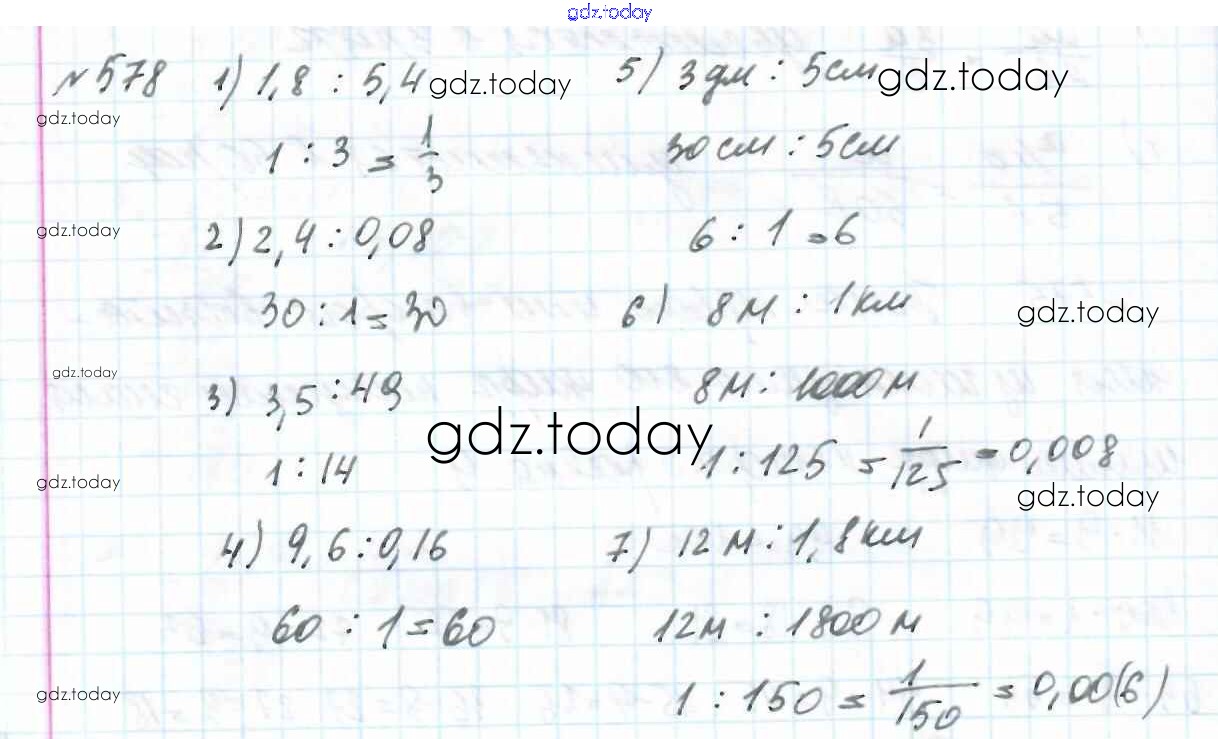 gdz.today
№578 1) 1,8 : 5,4 gdz.today
gdz.today
1 : 3 = 1/3
gdz.today
2) 2,4 : 0,08
30 : 1 = 30
gdz.today
3) 3,5 : 49
gdz.today
1 : 14
gdz.today
4) 9,6 : 0,16
60 : 1 = 60
gdz.today
5) 3 дм : 5 см gdz.today
30 см : 5 см
6 : 1 = 6
6) 8 м : 1 км
gdz.today
8 м : 1000 м
1 : 125 = 1/125 = 0,008
gdz.today
7) 12 м : 1,8 км
12 м : 1800 м
1 : 150 = 1/150 = 0,00(6)